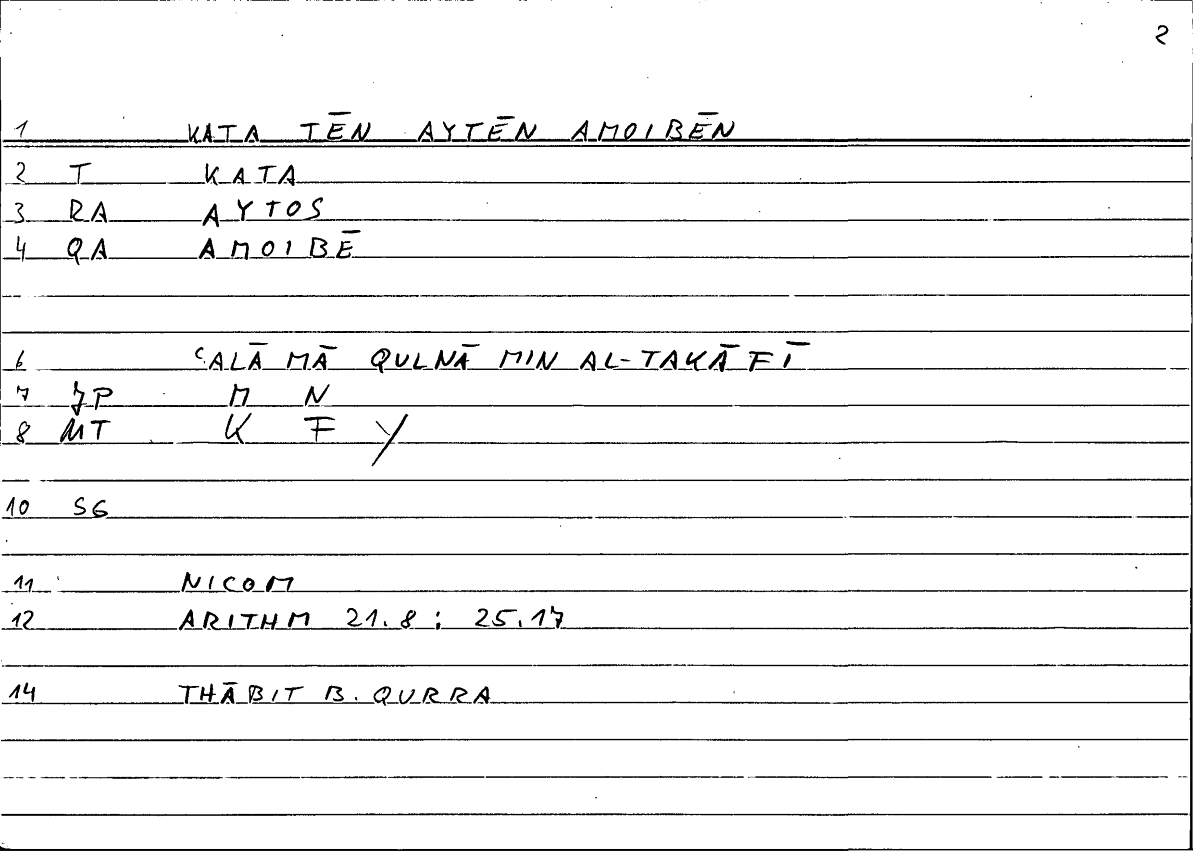 2
1 KATA TĒN AYTĒN AMOIBĒN
2 T KATA
3 RA AYTOS
4 QA AMOIBĒ
6 ʿALĀ MĀ QULNĀ MIN AL-TAKĀFĪ
7 JP M N
8 MT K F Y
10 SG
11 NICOM
12 ARITHM 21.8; 25.17
14 THĀBIT B. QURRA